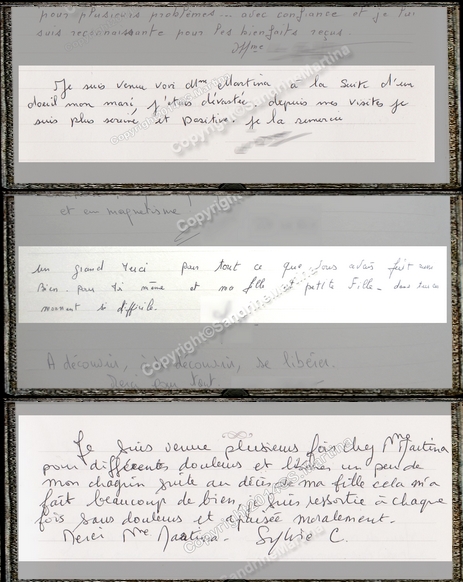 pour plusieurs problèmes... avec confiance et je lui
suis reconnaissante pour les bienfaits reçus.
Mme
Je suis venue voir Mme Martina à la suite d'un
deuil mon mari, j'étais dévastée. depuis mes visites je
suis plus sereine et positive. je la remercie
et en magnétisme
un grand merci pour tout ce que vous avais fait
Bien. pour moi même et ma fille et petite fille. dans
moment si difficile.
A découvrir, à découvrir, se libérer.
tout
Je suis venue plusieurs fois chez Mme Martina
pour différentes douleurs et un peu de
mon chagrin suite au décès de ma fille cela m'a
fait beaucoup de bien. Je suis ressortie à chaque
fois sans douleurs et apaisée moralement.
Merci Mme Martina. Sylvie C.
Copyright©SandrineMartina
Copyright©SandrineMartina
Copyright©SandrineMartina